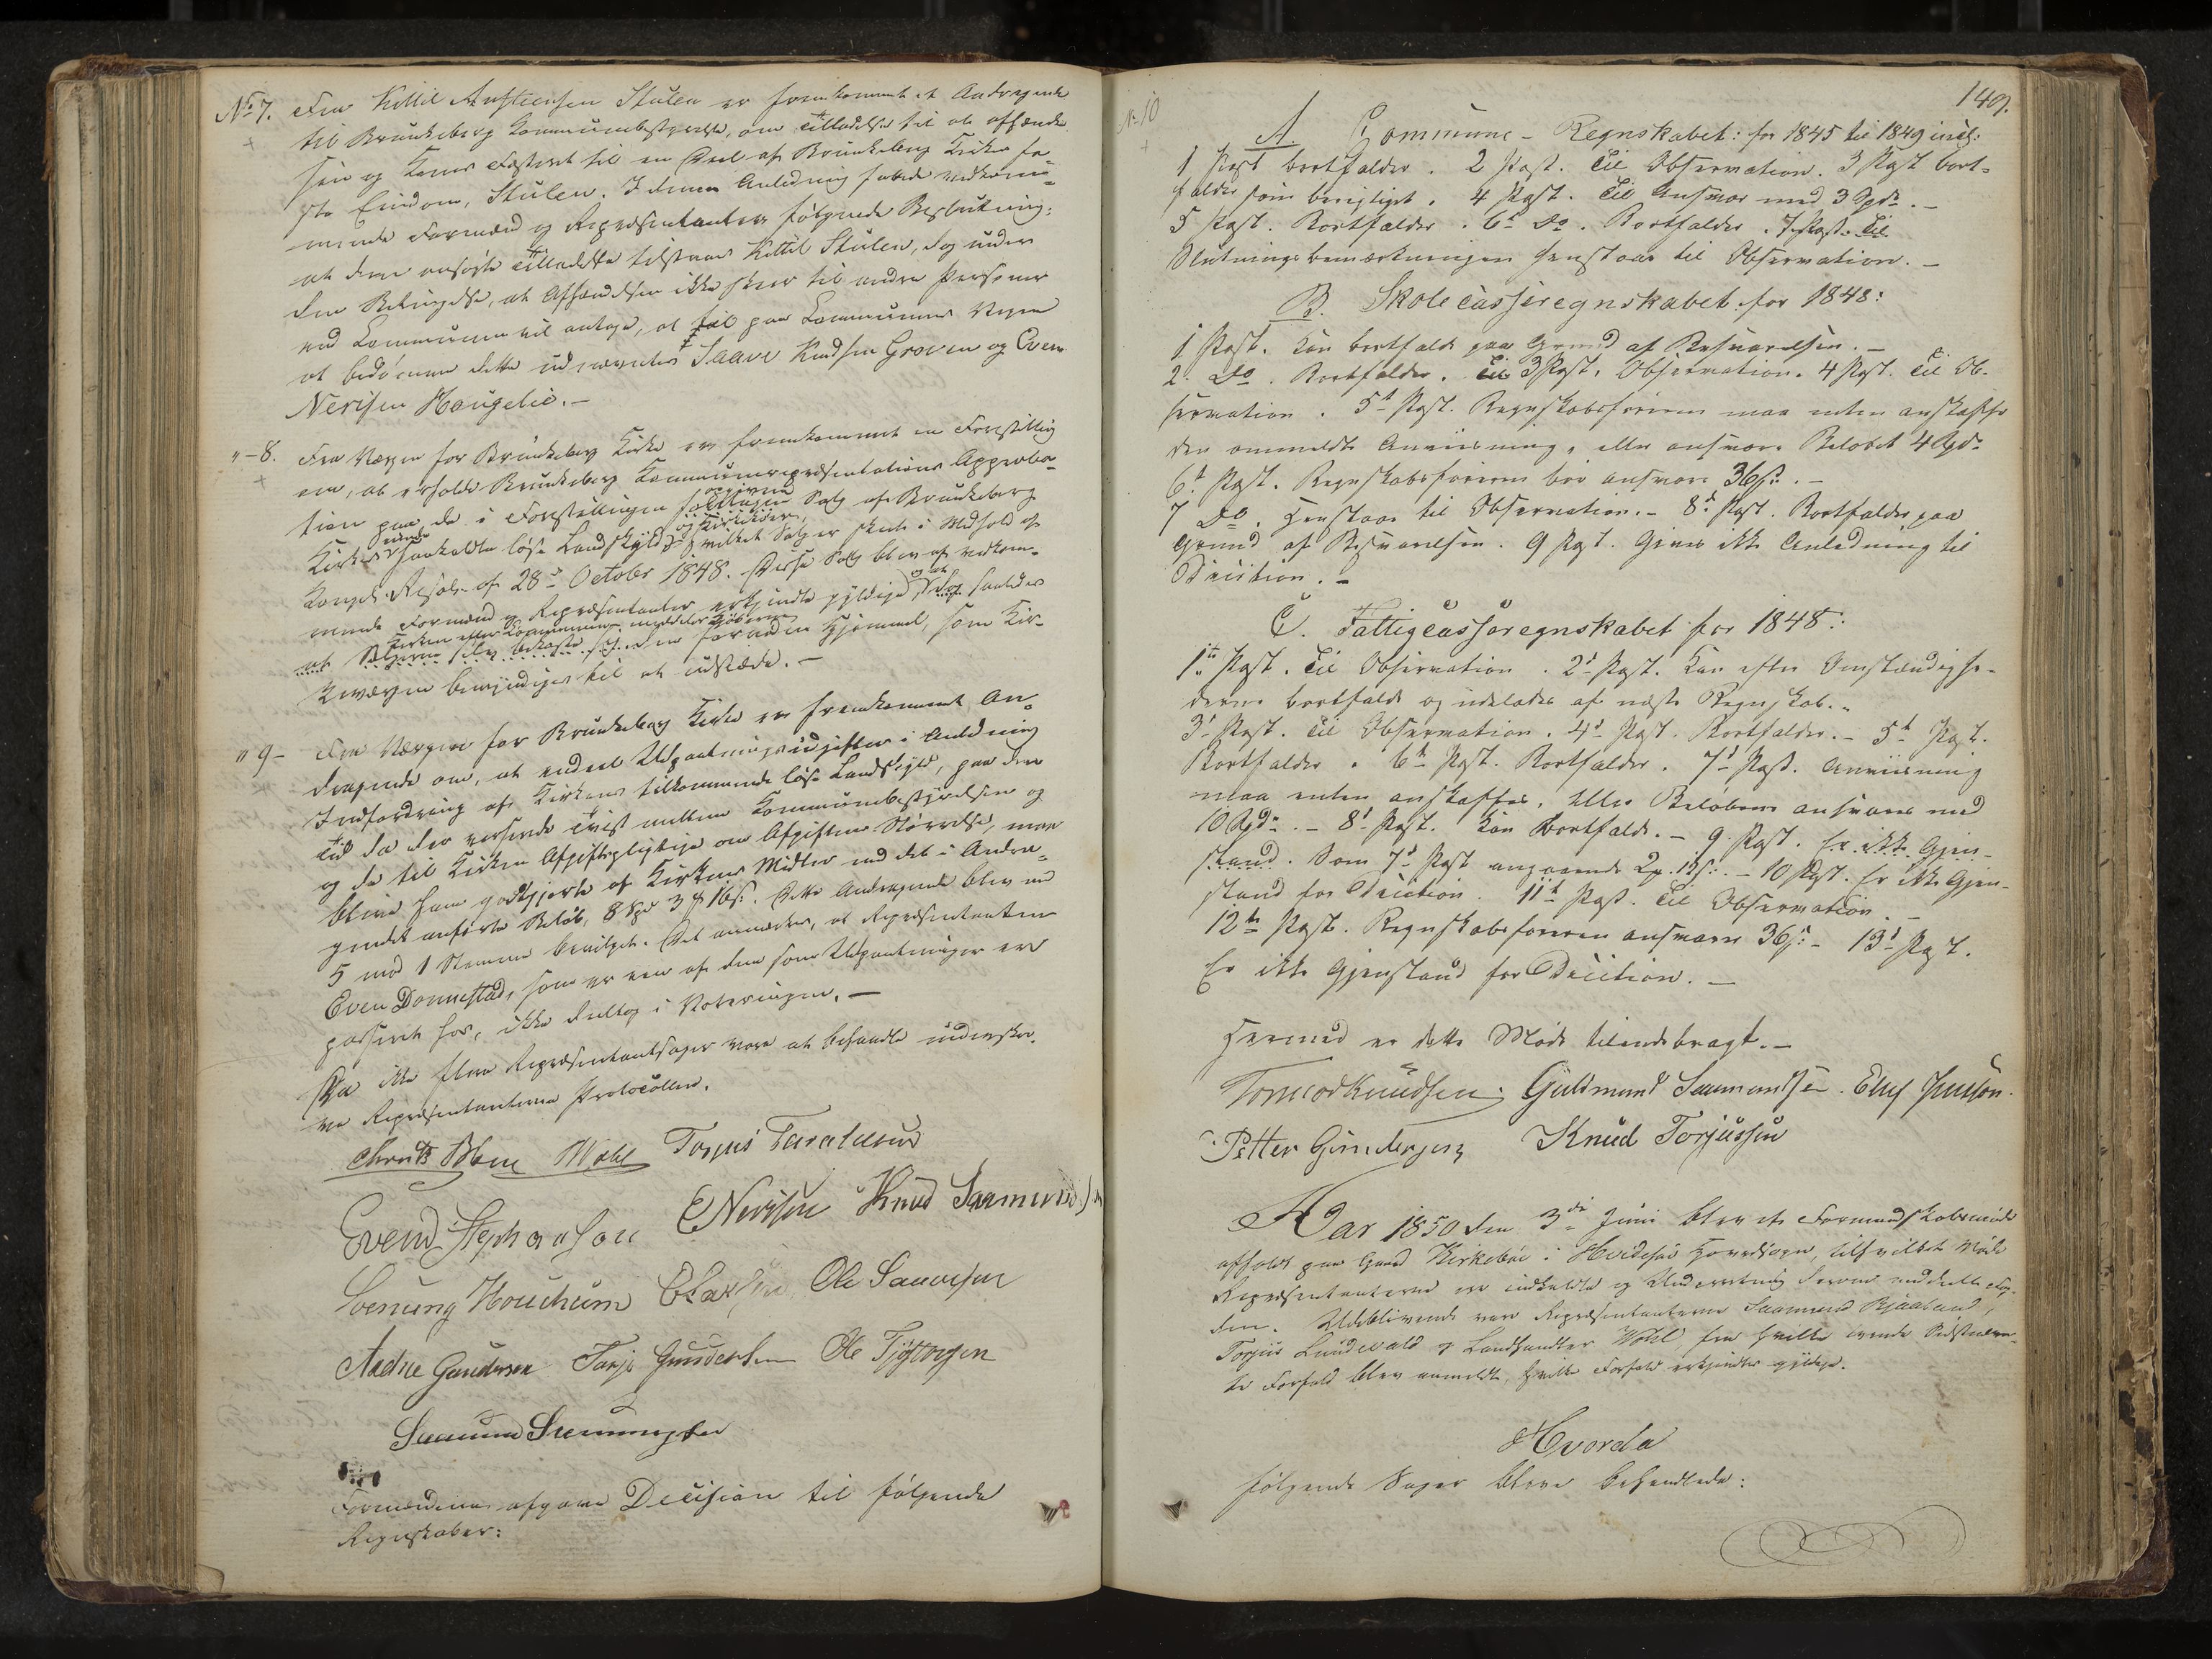 No 7. Fra Kittil Austensen Stulen er fremkommet et Andragende
til Brunkeberg Kommunebestyrelse, om Tilladelse til at afhænde
sin og Kones Festeret til en Deel af Brunkeberg Kirke be-
sta Eiendom, Stulen. I denne Anledning fattede vedkom-
mende Formænd og Repræsentanter følgende Beslutning:
at den ansøgte Tilladelse tilstaaes Kittil Stulen, dog under
den Betingelse, at Afhændelsen ikke skeer til andre Personer
end Communen vil antage, at til paa Communens Vegne
at bedømme dette udnævntes Saave Knudsen Groven og Even
Nerisen Haugelie.-
"-8. Fra Værgen for Brunkeberg Kirke er fremkommet en Forestilling
om, at erholde Brunkeberg Kommunerepræsentations Approba-
tion paa de i Forestillingen opgivne Salg af Brunkeberg
Kirkes saakaldte løse Landskyld og Kirkekøer, hvilket Salg er skeet i Medhold af
Kongel. Resol. af 28de October 1848. Disse Salg blev af vedkom-
mende Formænd og Repræsentanter erkjendte gyldige, og at
Kirken eller Kommunen meddeler Kjøberne
at Sælgerne selv bekoste den fornødne Hjemmel, som Kir-
keværgen bemyndiges til at udstæde.-
" 9- Fra Værgen for Brunkeberg Kirke er fremkommet An-
dragende om, at endeel Udpantningsudgifter i Anledning
Indfordring af Kirkens tilkommende løse Landskyld, paa den
Tid da der verserede Tvist mellem Kommunebestyrelsen og
og de til Kirken Afgiftspligtige om Afgiftens Størrelse, maa
blive ham godtgjorte af Kirkens Midler med det i Andra-
gendet anførte Beløb, 8 Spd 3 # 16 s. Dette Andragende blev med
5 mod 1 Stemme bevilget. Det anmærkes, at Repræsentanten
Even Donnestad, som er een af dem som Udpantninger ere
passeret hos, ikke deeltog i Voteringen.-
Da ikke flere Repræsentantsager vare at behandle underskre-
ve Repræsentanterne Protocollen.
Wahl Torjus Taraldsen
Evend Stephansen ENerisen Knud Saamundsen
Svenung Houchum Ole Saavesen
Aadne Gundersen Torje Gundersen Ole Tjøstogsen
Formændene afgave Decision til følgende
Regnskaber:
149.
No 10
A Commune-Regnskabet: for 1845 til 1849 incl.
1 Post bortfalder. 2 Post. Til Observation. 3 Post bort-
falder som berigtiget. 4 Post. Til Ansvar med 3 Spd.-
5 Post. Bortfalder. 6te Do. Bortfalder. 7 Post. Til
Slutningsbemærkningen henstaaer til Observation.-
B. Skolecasseregnskabet for 1848:
1 Post. Kan bortfalde paa Grund af Besvarelsen.-
2. Do. Bortfalder. 3 Post. Observation. 4 Post. Til Ob-
servation. 5te Post. Regnskabsføreren maa enten anskaffe
den ommeldte Anviisning, eller ansvare Beløbet 4 Spd.
6te Post. Regnskabsføreren bør ansvare 36 s.-
7 Do. Henstaaer til Observation.- 8de Post. Bortfalder paa
Grund af Besvarelsen. 9 Post. Giver ikke Anledning til
Decition.-
C. Fattigcasseregnskabet for 1848:
1ste Post. Til Observation. 2den Post. Kan efter Omstændighe-
derne bortfalde og udelades af næste Regnskab.-
3die Post. Til Observation. 4de Post. Bortfalder.- 5te Post.
Bortfalder. 6te Post. Bortfalder. 7de Post. Anviisning
maa enten anskaffes, eller Beløbene ansvares med
10 Spd.- 8de Post. Kan bortfalde.- 9 Post. Er ikke Gjen-
stand. Som 7de Post angaaende 10 Post. Er ikke Gjen-
stand for Decition. 11te Post. Til Observation.-
12te Post. Regnskabsføreren ansvare 36 s.- 13de Post.
Er ikke Gjenstand for Decition.-
Hermed er dette Møde tilendebragt.-
Tormod Knudsen. Guldmund Saamundsen. Eluf Jensson.
Petter Gundersen Knud Torjussen
Aar 1850 den 3die Juni blev et Formandskabsmøde
afholdt paa Gaard Kirkebøe i Hvidesøe Hovedsogn, til hvilket Møde
Repræsentanterne ere indkaldte og Underretning derom meddeelt Fog-
den. Udeblivende vare Repræsentanterne Saamund Bjaaland,
Torjus Lundevald og Landhandler Wahl, fra hvilke tvende Sidstnævn-
te Forfald blev anmeldt, hvilke Forfald erkjendtes gyldige.
Hvorda
følgende Sager bleve behandlede: